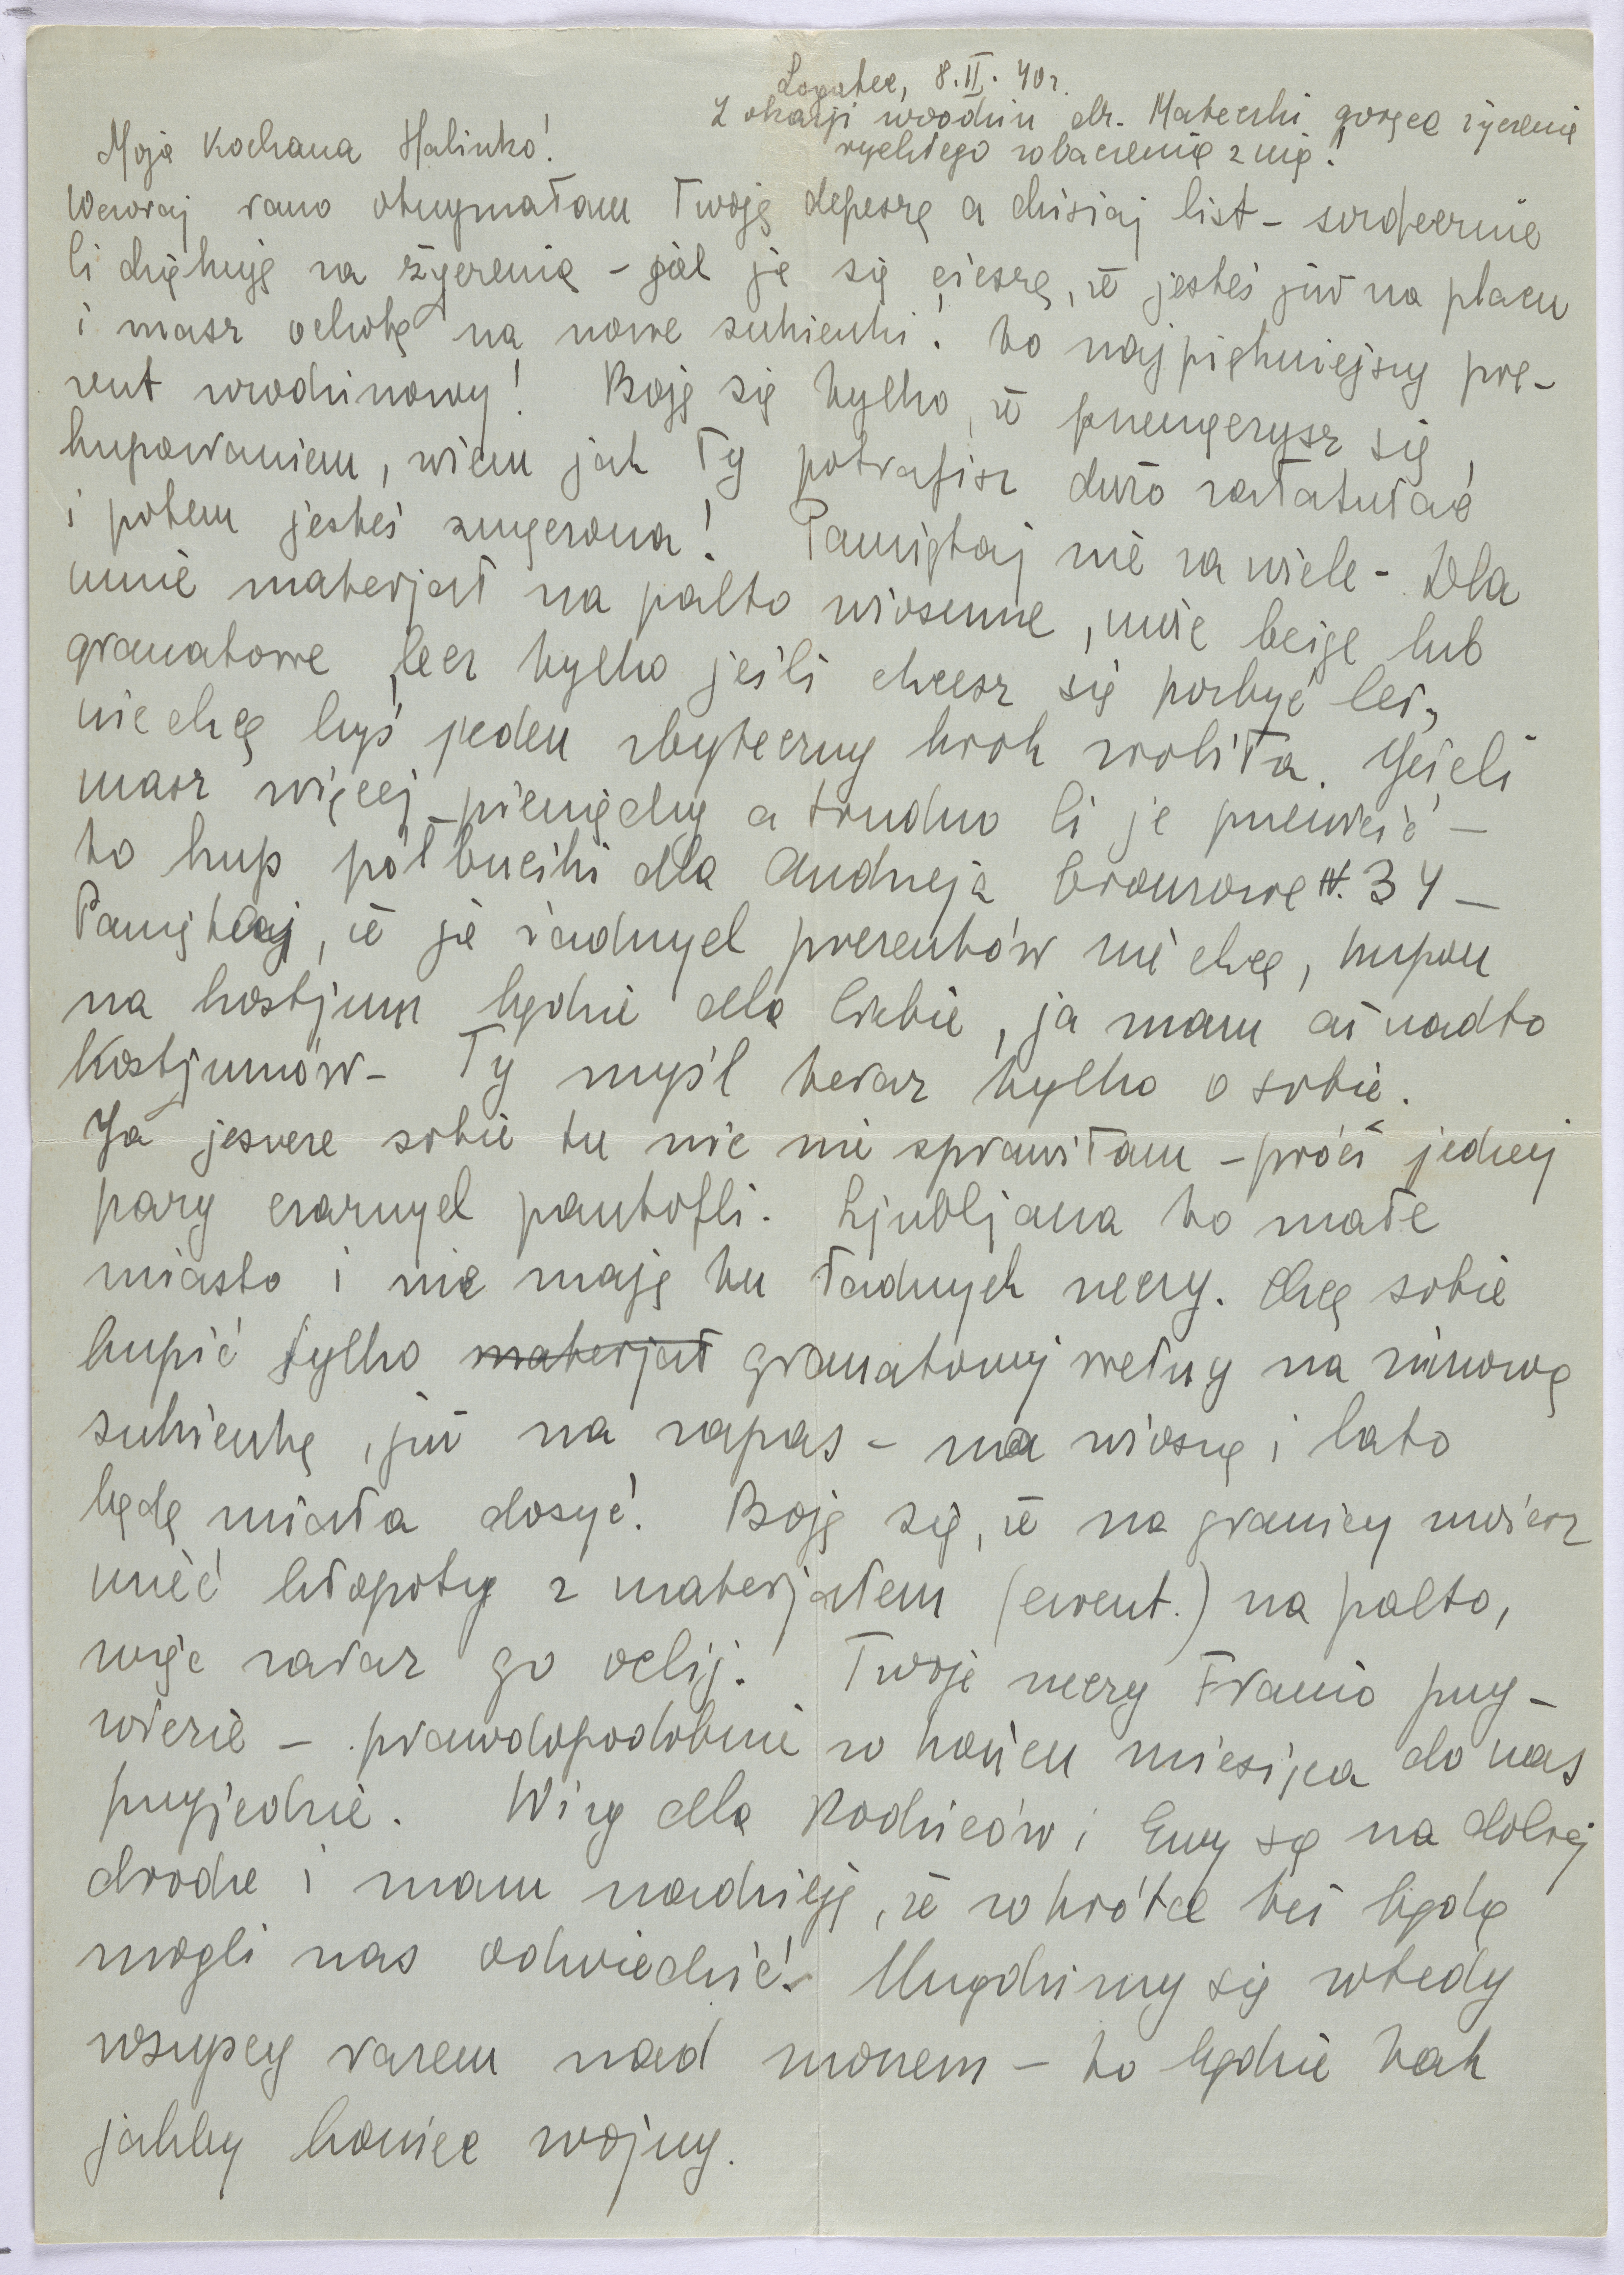 Logatec, 8.II.40r.
Z okazji urodzin dr. Mateczki gorące życzenia
rychłego zobaczenia z nią!
Moja Kochana Halinko!
Wczoraj rano otrzymałam Twoją depeszę a dzisiaj list – serdecznie
Ci dziękuję za życzenia – jak ja się cieszę, że jesteś już na placu
i masz ochotę na nowe sukienki! to najpiękniejszy pre-
zent urodzinowy! Boję się tylko, że przemęczysz się,
kupowaniem, wiem jak Ty potrafisz dużo załatwiać
i potem jesteś zmęczona! Pamiętaj nie za wiele – Dla
mnie materjał na palto wiosenne, może beige lub
granatowe, lecz tylko jeśli chcesz się pozbyć lei,
nie chcę byś jeden zbyteczny krok zrobiła. Jeżeli
masz więcej pieniędzy a trudno Ci je przewieźć –
to kup półbuciki dla Andrzeja bronzowe N. 34 –
Pamiętaj, że ja żadnych prezentów nie chcę, kupon
na kostjum będzie dla Ciebie, ja mam aż nadto
kostjumów – Ty myśl teraz tylko o sobie.
Ja jeszcze sobie tu nic nie sprawiłam – prócz jednej
pary czarnych pantofli. Ljubljana to małe
miasto i nie mają tu ładnych rzeczy. Chcę sobie
kupić tylko materjał granatowej wełny na zimową
sukienkę, już na zapas – na wiosnę i lato
będę miała dosyć. Boję się, że na granicy możesz
mieć kłopoty z materjałem (ewent.) na palto,
więc zaraz go oclij. Twoje rzeczy Franio przy-
wiezie – prawdopodobnie w końcu miesiąca do nas
przyjedzie. Wizy dla Rodziców i Ewy są na dobrej
drodze i mam nadzieję, że wkrótce też będą
mogli nas odwiedzić! Urządzimy się wtedy
wszyscy razem nad morzem – to będzie tak
jakby koniec wojny.